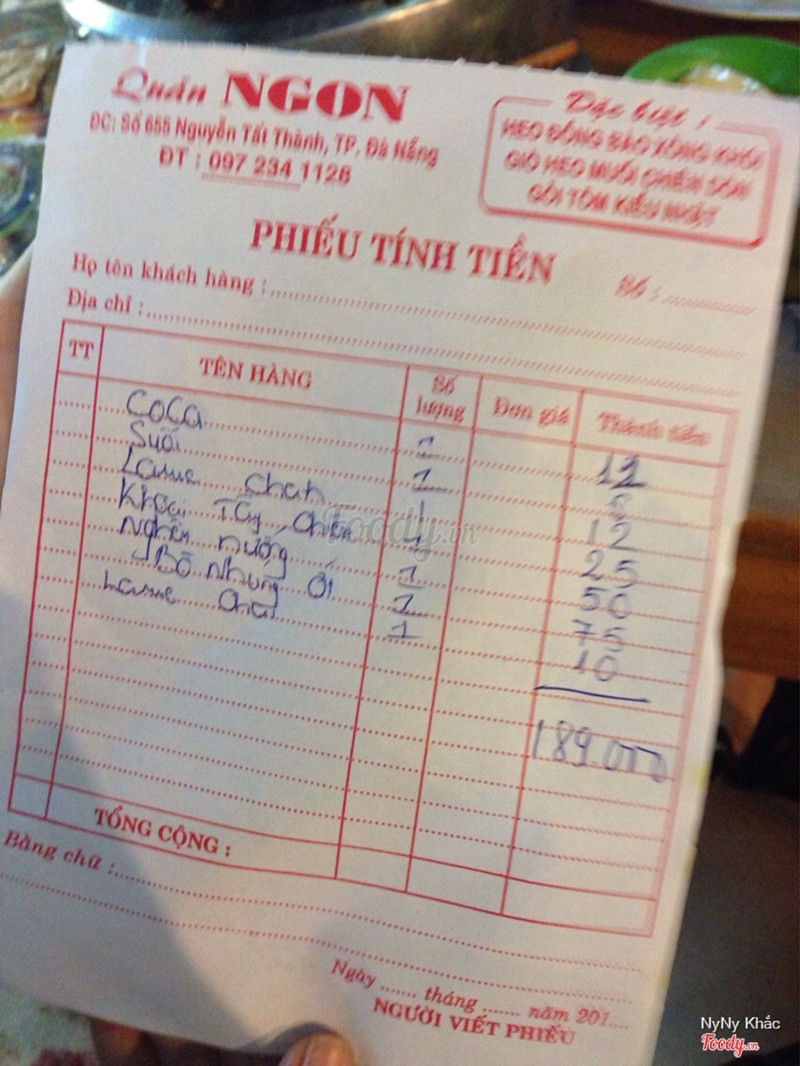 Quán NGON
ĐC: Số 655 Nguyễn Tất Thành, TP. Đà Nẵng
ĐT : 097 234 1128
Đặc biệt :
HEO ĐỒNG BÀO XÔNG KHÓI
GIÒ HEO MUỐI CHIÊN GIÒN
GỎI TÔM KIỂU NHẬT
PHIẾU TÍNH TIỀN
Số :
Họ tên khách hàng :
Địa chỉ :
TT TÊN HÀNG Số lượng Đơn giá Thành tiền
CoCa 1 12
Suối 1
Larue chanh 1 12
Khoai Tây chiên 1 25
nướng 1 50
Bò Nhúng ớt 1 75
Larue chai 1 10
189.000
TỔNG CỘNG :
Bằng chữ :
Ngày ....... tháng ....... năm 201....
NGƯỜI VIẾT PHIẾU
Foody.vn
NyNy Khắc
Foody.vn